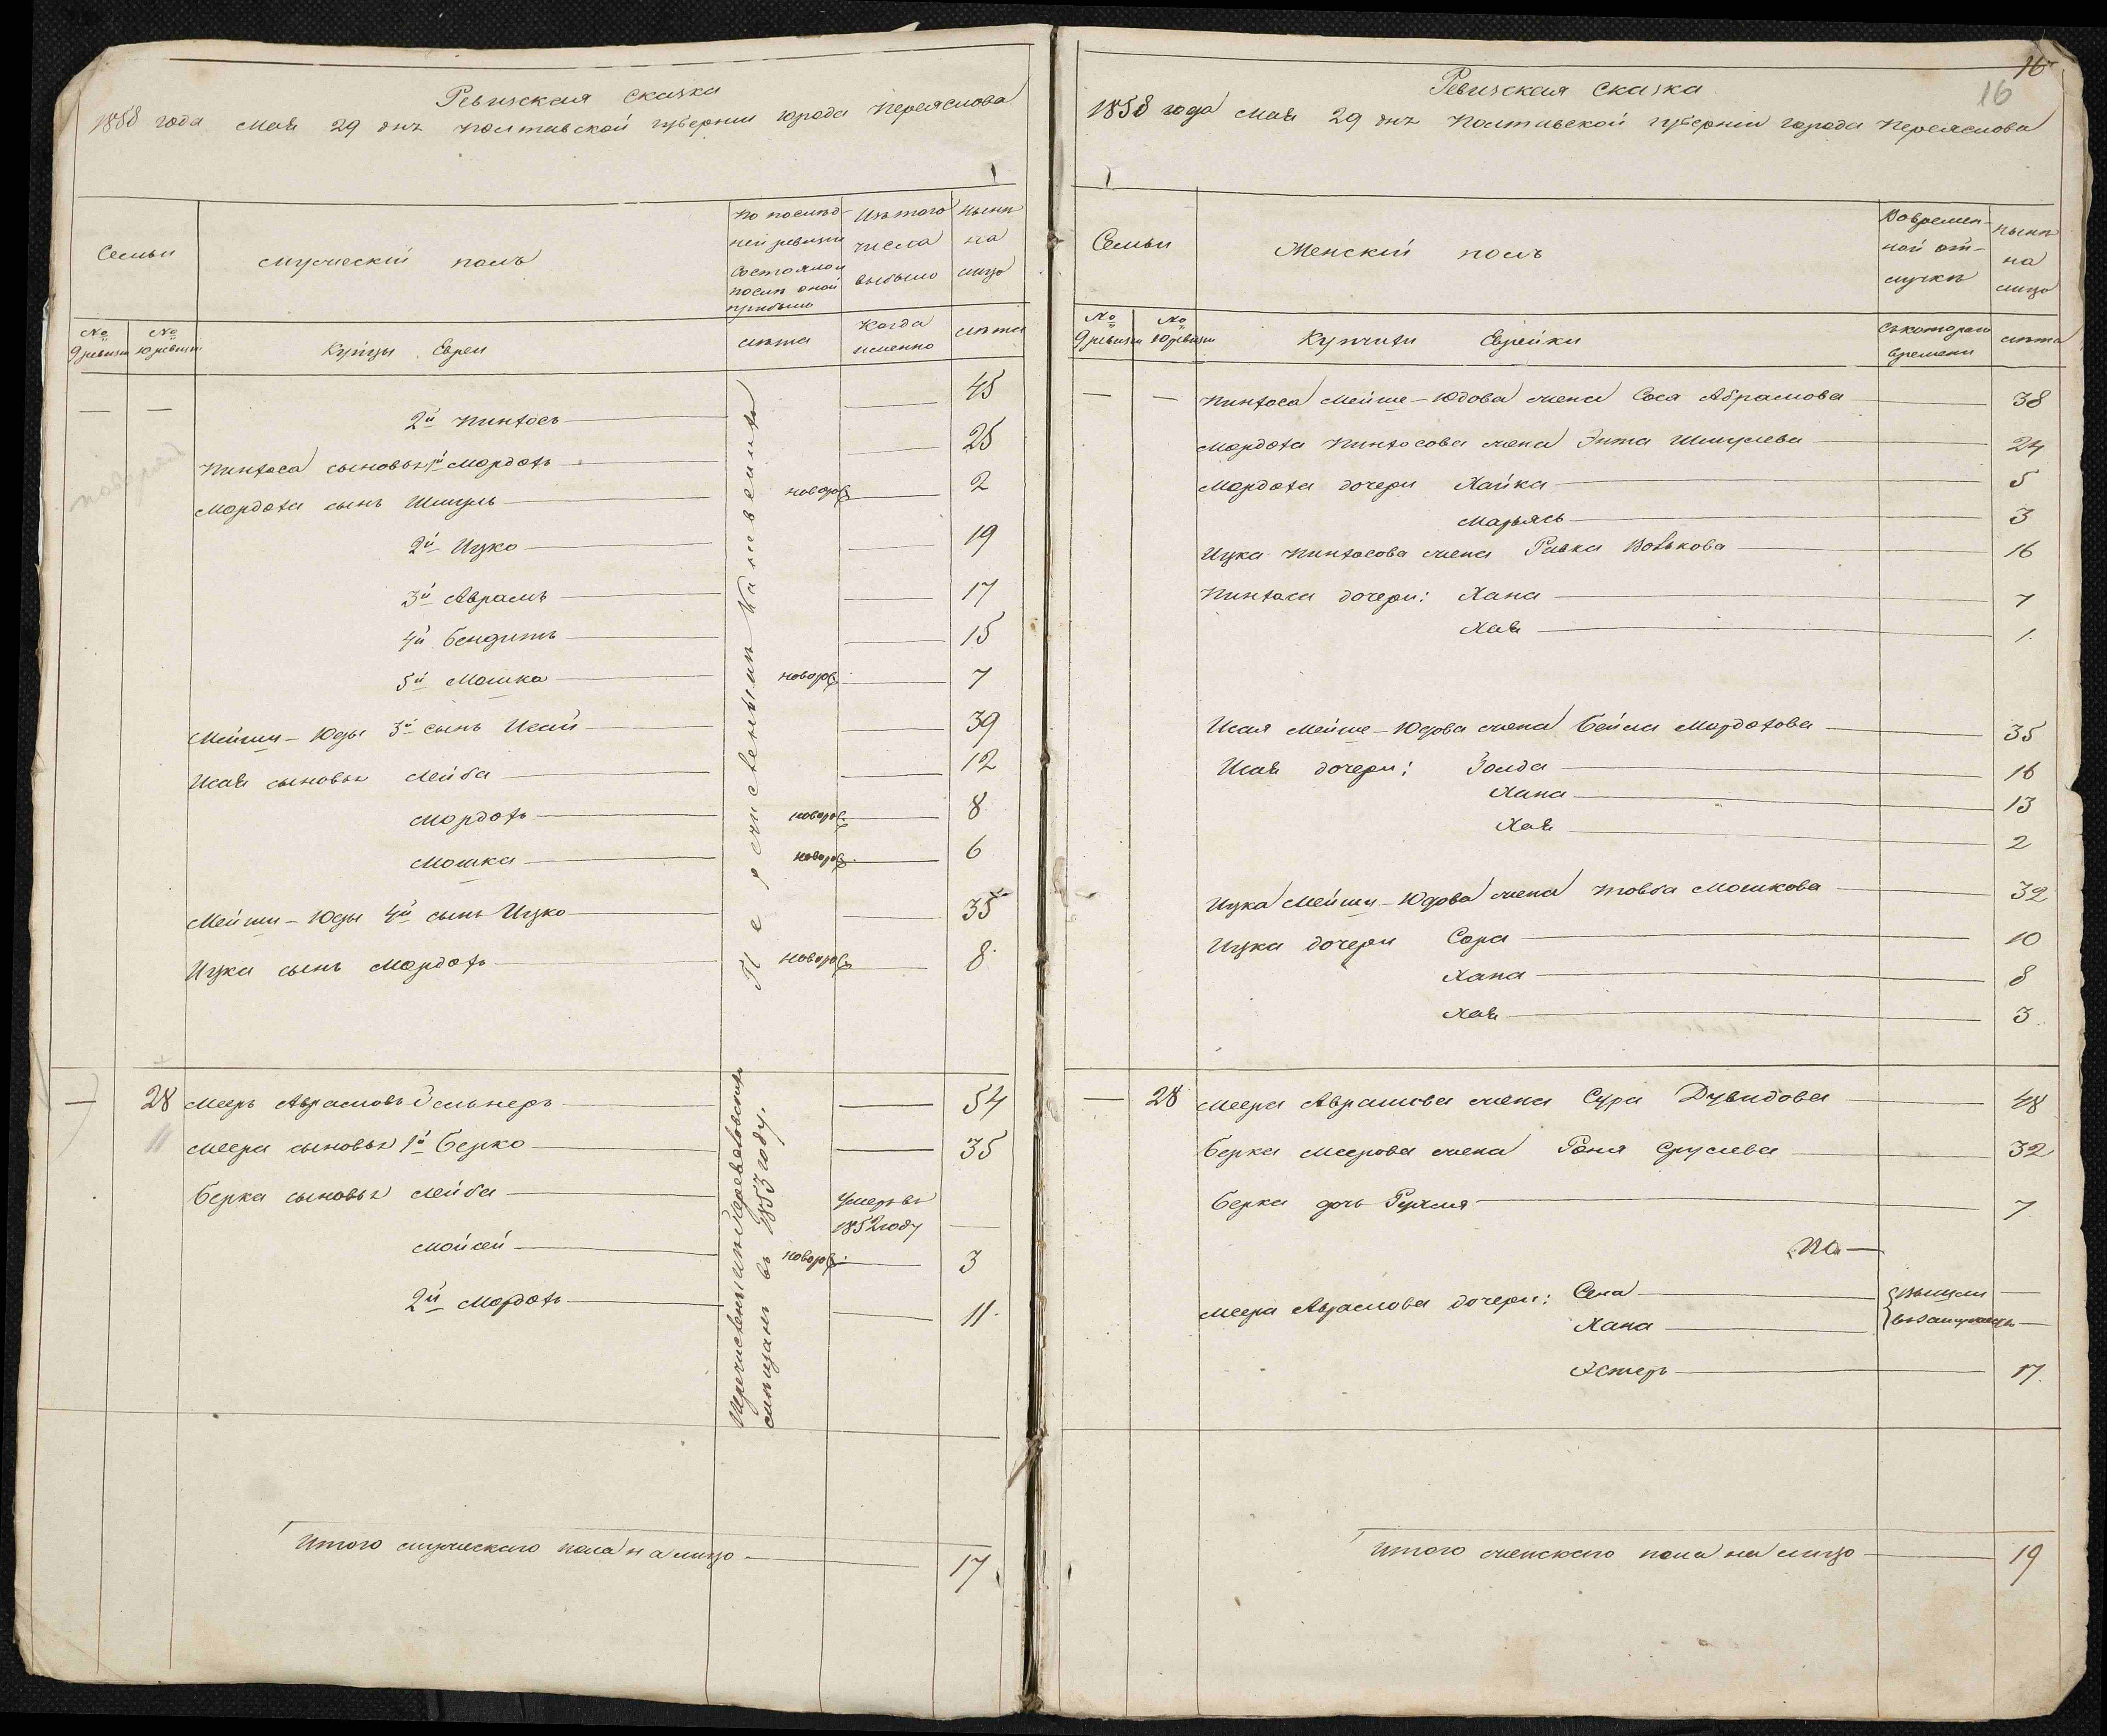 Ревизская сказка
1858 года Мая 29 дня Полтавской губернии города Переяслова
Семьи
Мужеский полъ
По послѣд-
ней ревизіи
состояло и
послѣ оной
прибыло
Изъ того
числа
выбыло
Нынѣ
на
лицо
№
9 ревизіи
№
10 ревизіи
Купцы Евреи
лѣта
Когда
именно
лѣта
— — 2й Пинхосъ — 45
Пинхоса сыновья 1й Мордохъ — 25
Мордоха сынъ Шмуль — новорож 2
2й Ицко — 19
3й Аврамъ — 17
4й Бендитъ — 15
5й Мошка — новорож 7
Мейши-Юды 3й сынъ Исай — 39
Исая сыновья Лейба — 12
Мордохъ — новорож. 8
Мошка — новорож. 6
Мейши-Юды 4й сынъ Ицко — 35
Ицки сынъ Мордохъ — новорож 8
Перечисленные
— 28 Мееръ Аврамовъ — 54
Меера сыновья 1й Берко — 35
Берка сыновья Лейба — Умеръ въ
1852 году —
Мойсей — новорож. 3
2й Мордохъ — 11.
Перечисленные
въ 1853 году.
Итого мужескаго пола на лицо — 17
16
16
Ревизская сказка
1858 года Мая 29 дня Полтавской губерніи города Переяслова
Семьи
Женскій полъ
Во времен-
ной от-
лучкѣ
Нынѣ
на
лицо
№
9 ревизіи
№
10 ревизіи
Купчихи Еврейки
Съ котораго
времени
лѣта
— — Пинхоса Мейше-Юдова жена Сося Абрамова — 38
Мордоха Пинхосова жена Энта Шмулева — 24
Мордоха дочери Хайка — 5
Марьясь — 3
Ицка Пинхосова жена Ривка Волькова — 16
Пинхоса дочери: Хана — 7
Хая — 1.
Исая Мейше-Юдова жена Бейла Мордохова — 35
Исая дочери: Золда — 16
Хана — 13
Хая — 2
Ицка Мейши-Юдова жена Товба Мошкова — 32
Ицка дочери Сора — 10
Хана — 8
Хая — 3
— 28 Меера Аврамова жена Сура Дувидова — 48
Берка Меерова жена Роня Срулева — 32
Берки дочь Рухля — 7
Меера Аврамова дочери: Сена — Вышли —
Хана — въ замужество —
Эстеръ — 17.
Итого женскаго пола на лицо — 19